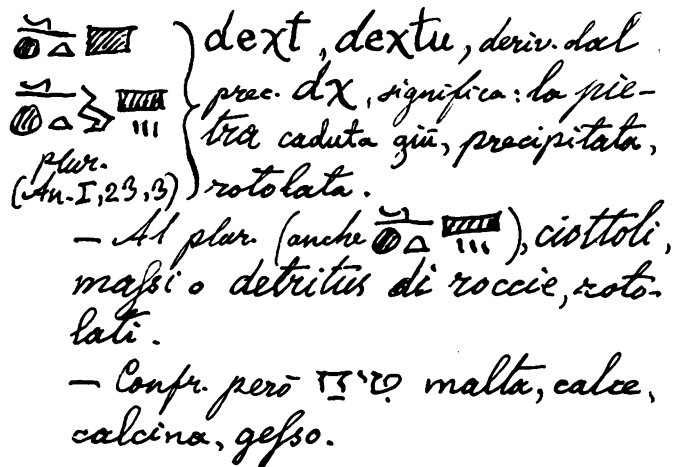 dext, dextu, deriv. dal
prec. dχ, significa: la pie-
tra caduta giù, precipitata,
plur.
(An. I, 23, 3) rotolata.
— Al plur. (anche ), ciottoli,
maſsi o detritus di roccie, roto-
lati.
— Confr. però טיחַ malta, calce,
calcina, geſso.